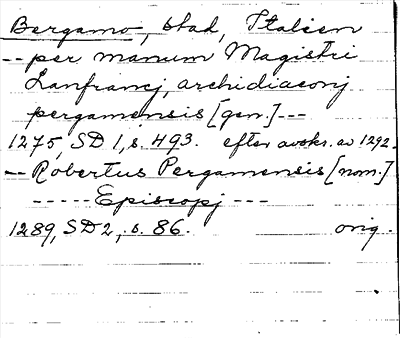 Bergamo, stad, Italien
-- per manum Magistri
Lanfrancj, archidiaconj
pergamensis [gen.] ---
1275, SD 1, s. 493. efter avskr. av 1292.
-- Robertus Pergamensis [nom.]
----- Episcopj ---
1289, SD 2, s. 86. orig.